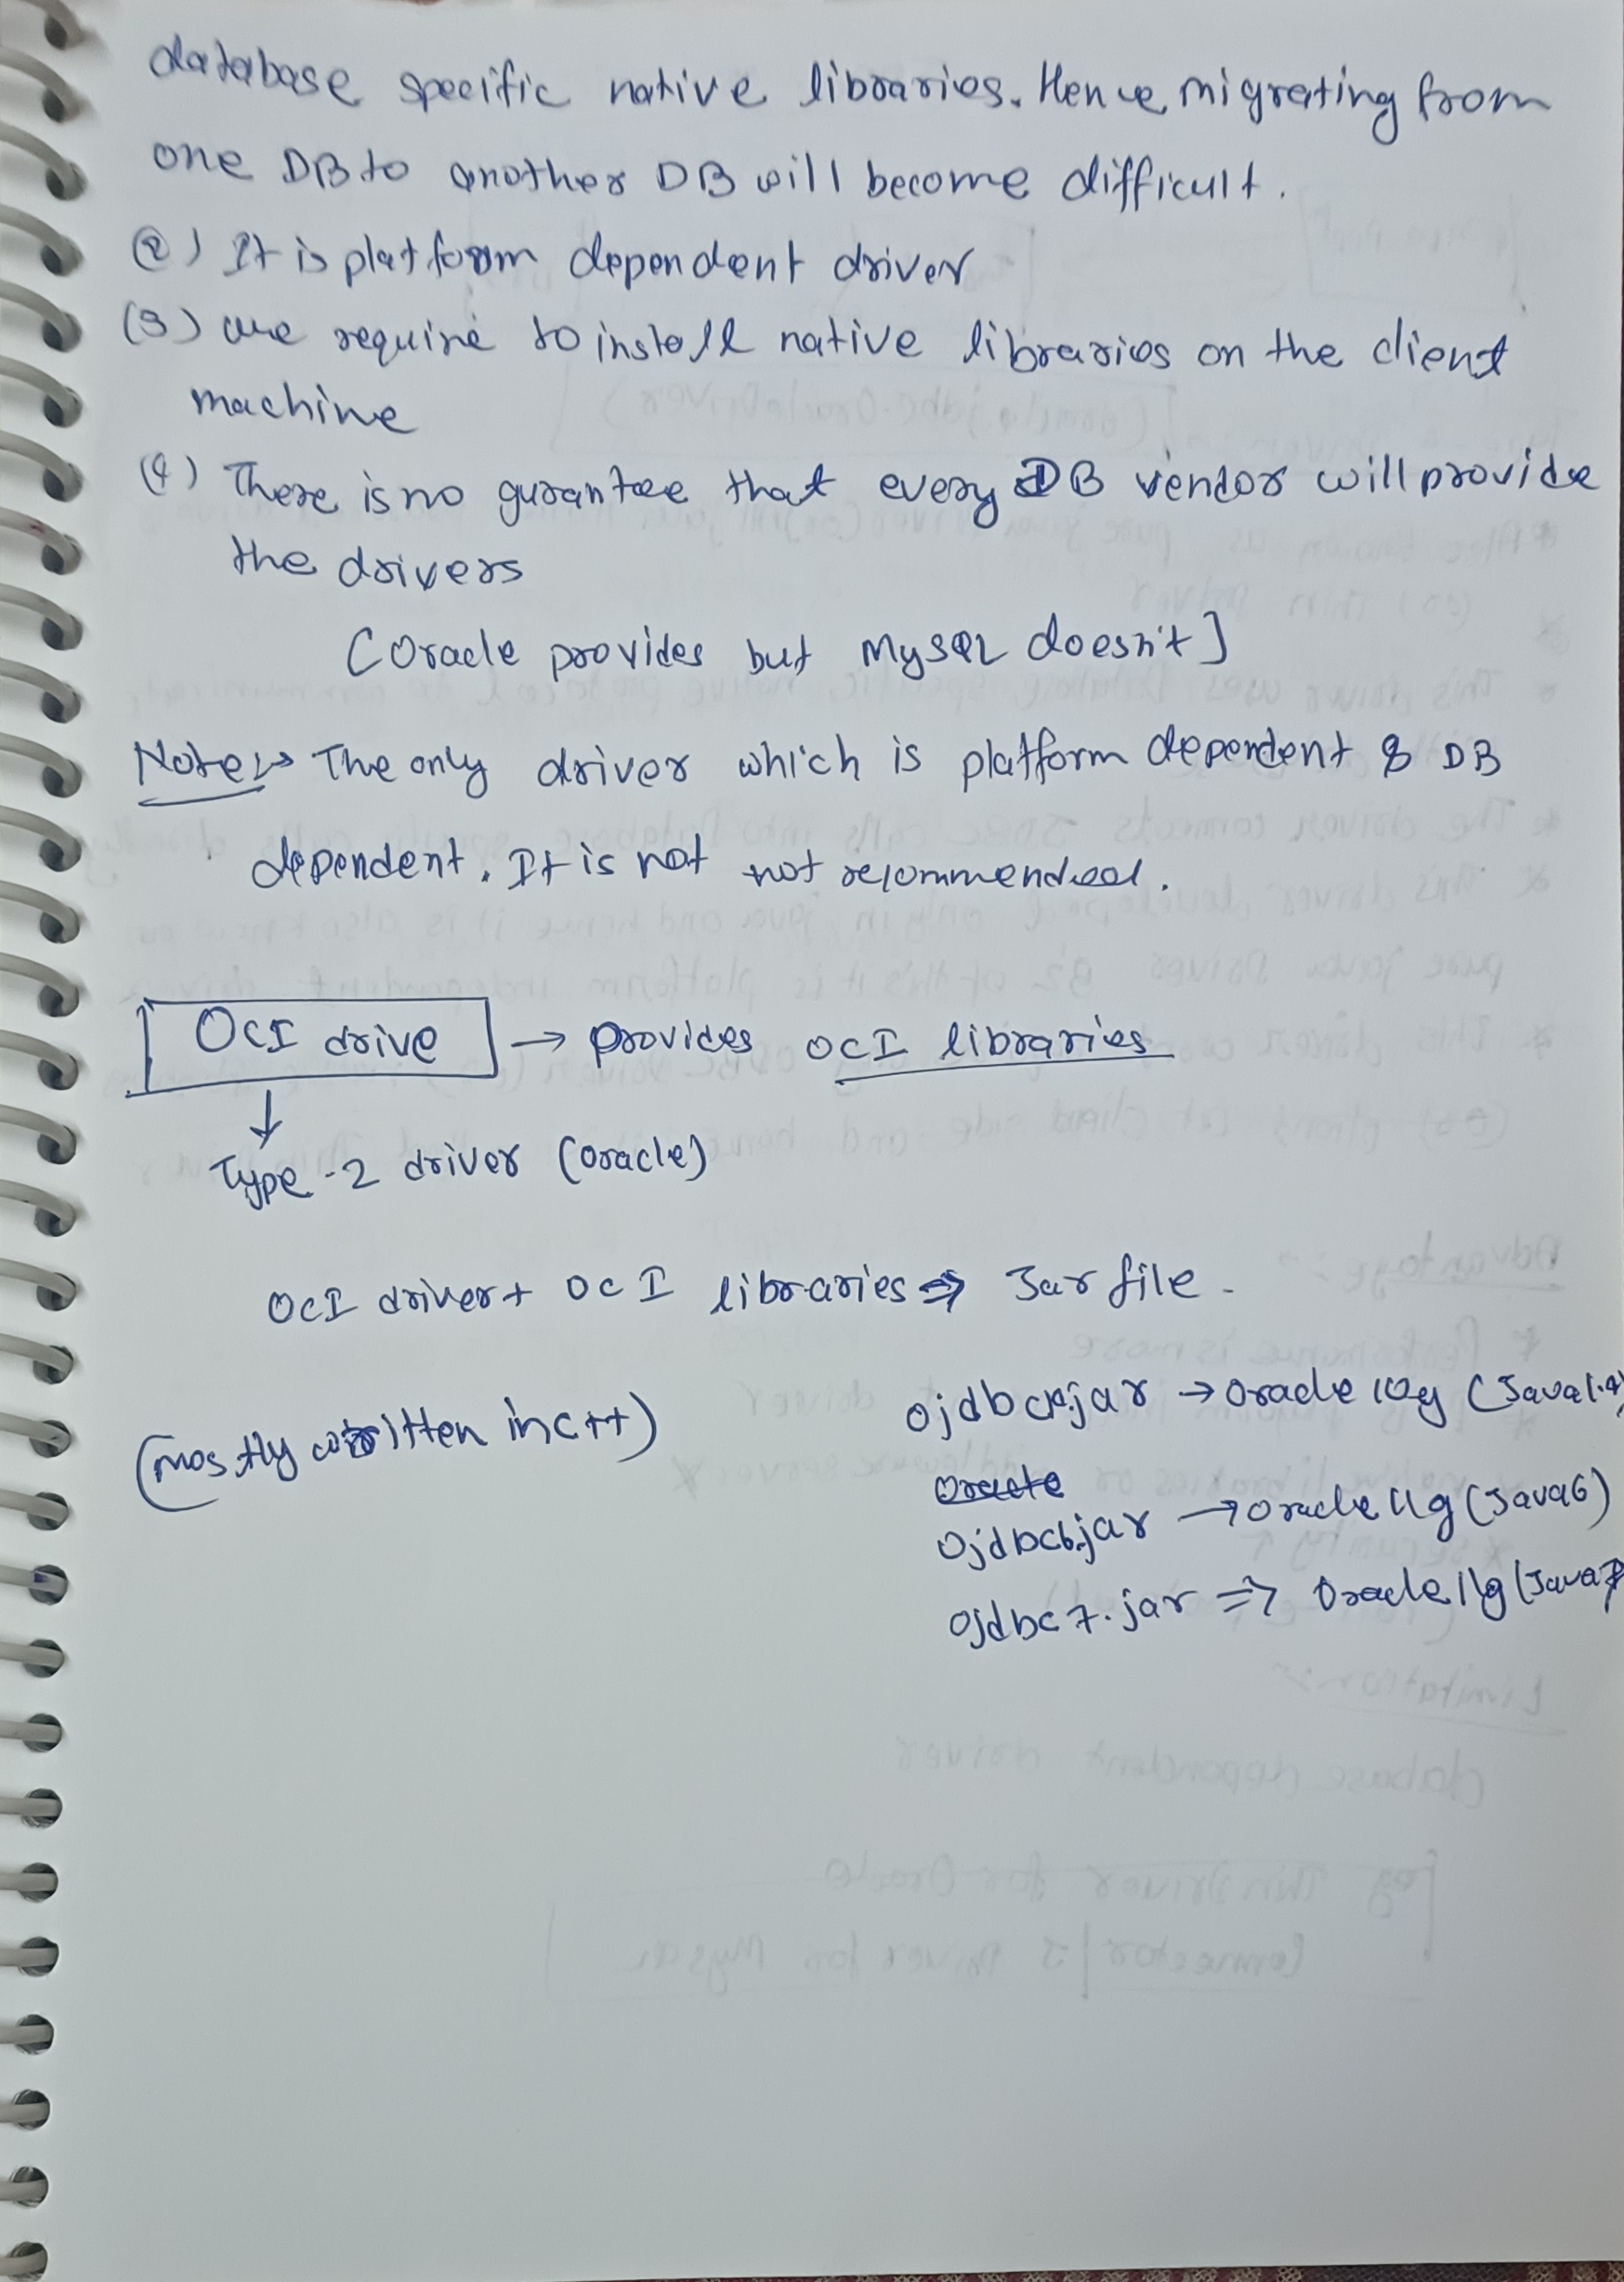 database specific native libraries. Hence migrating from
one DB to another DB will become difficult.
(2) It is platform dependent driver
(3) we require to install native libraries on the client
machine
(4) There is no gurantee that every DB vendor will provide
the drivers
[Oracle provides but MySQL doesn't]
Note:→ The only driver which is platform dependent & DB
dependent. It is not not recommended.
OCI drive → provides OCI libraries
↓
Type-2 driver (oracle)
OCI driver + OCI libraries ⇒ Jar file.
(mostly written in c++)
ojdbc14.jar → Oracle 10g (Java1.4)
Oracle
ojdbc6.jar → Oracle 11g (Java6)
ojdbc7.jar ⇒ Oracle 11g (Java7